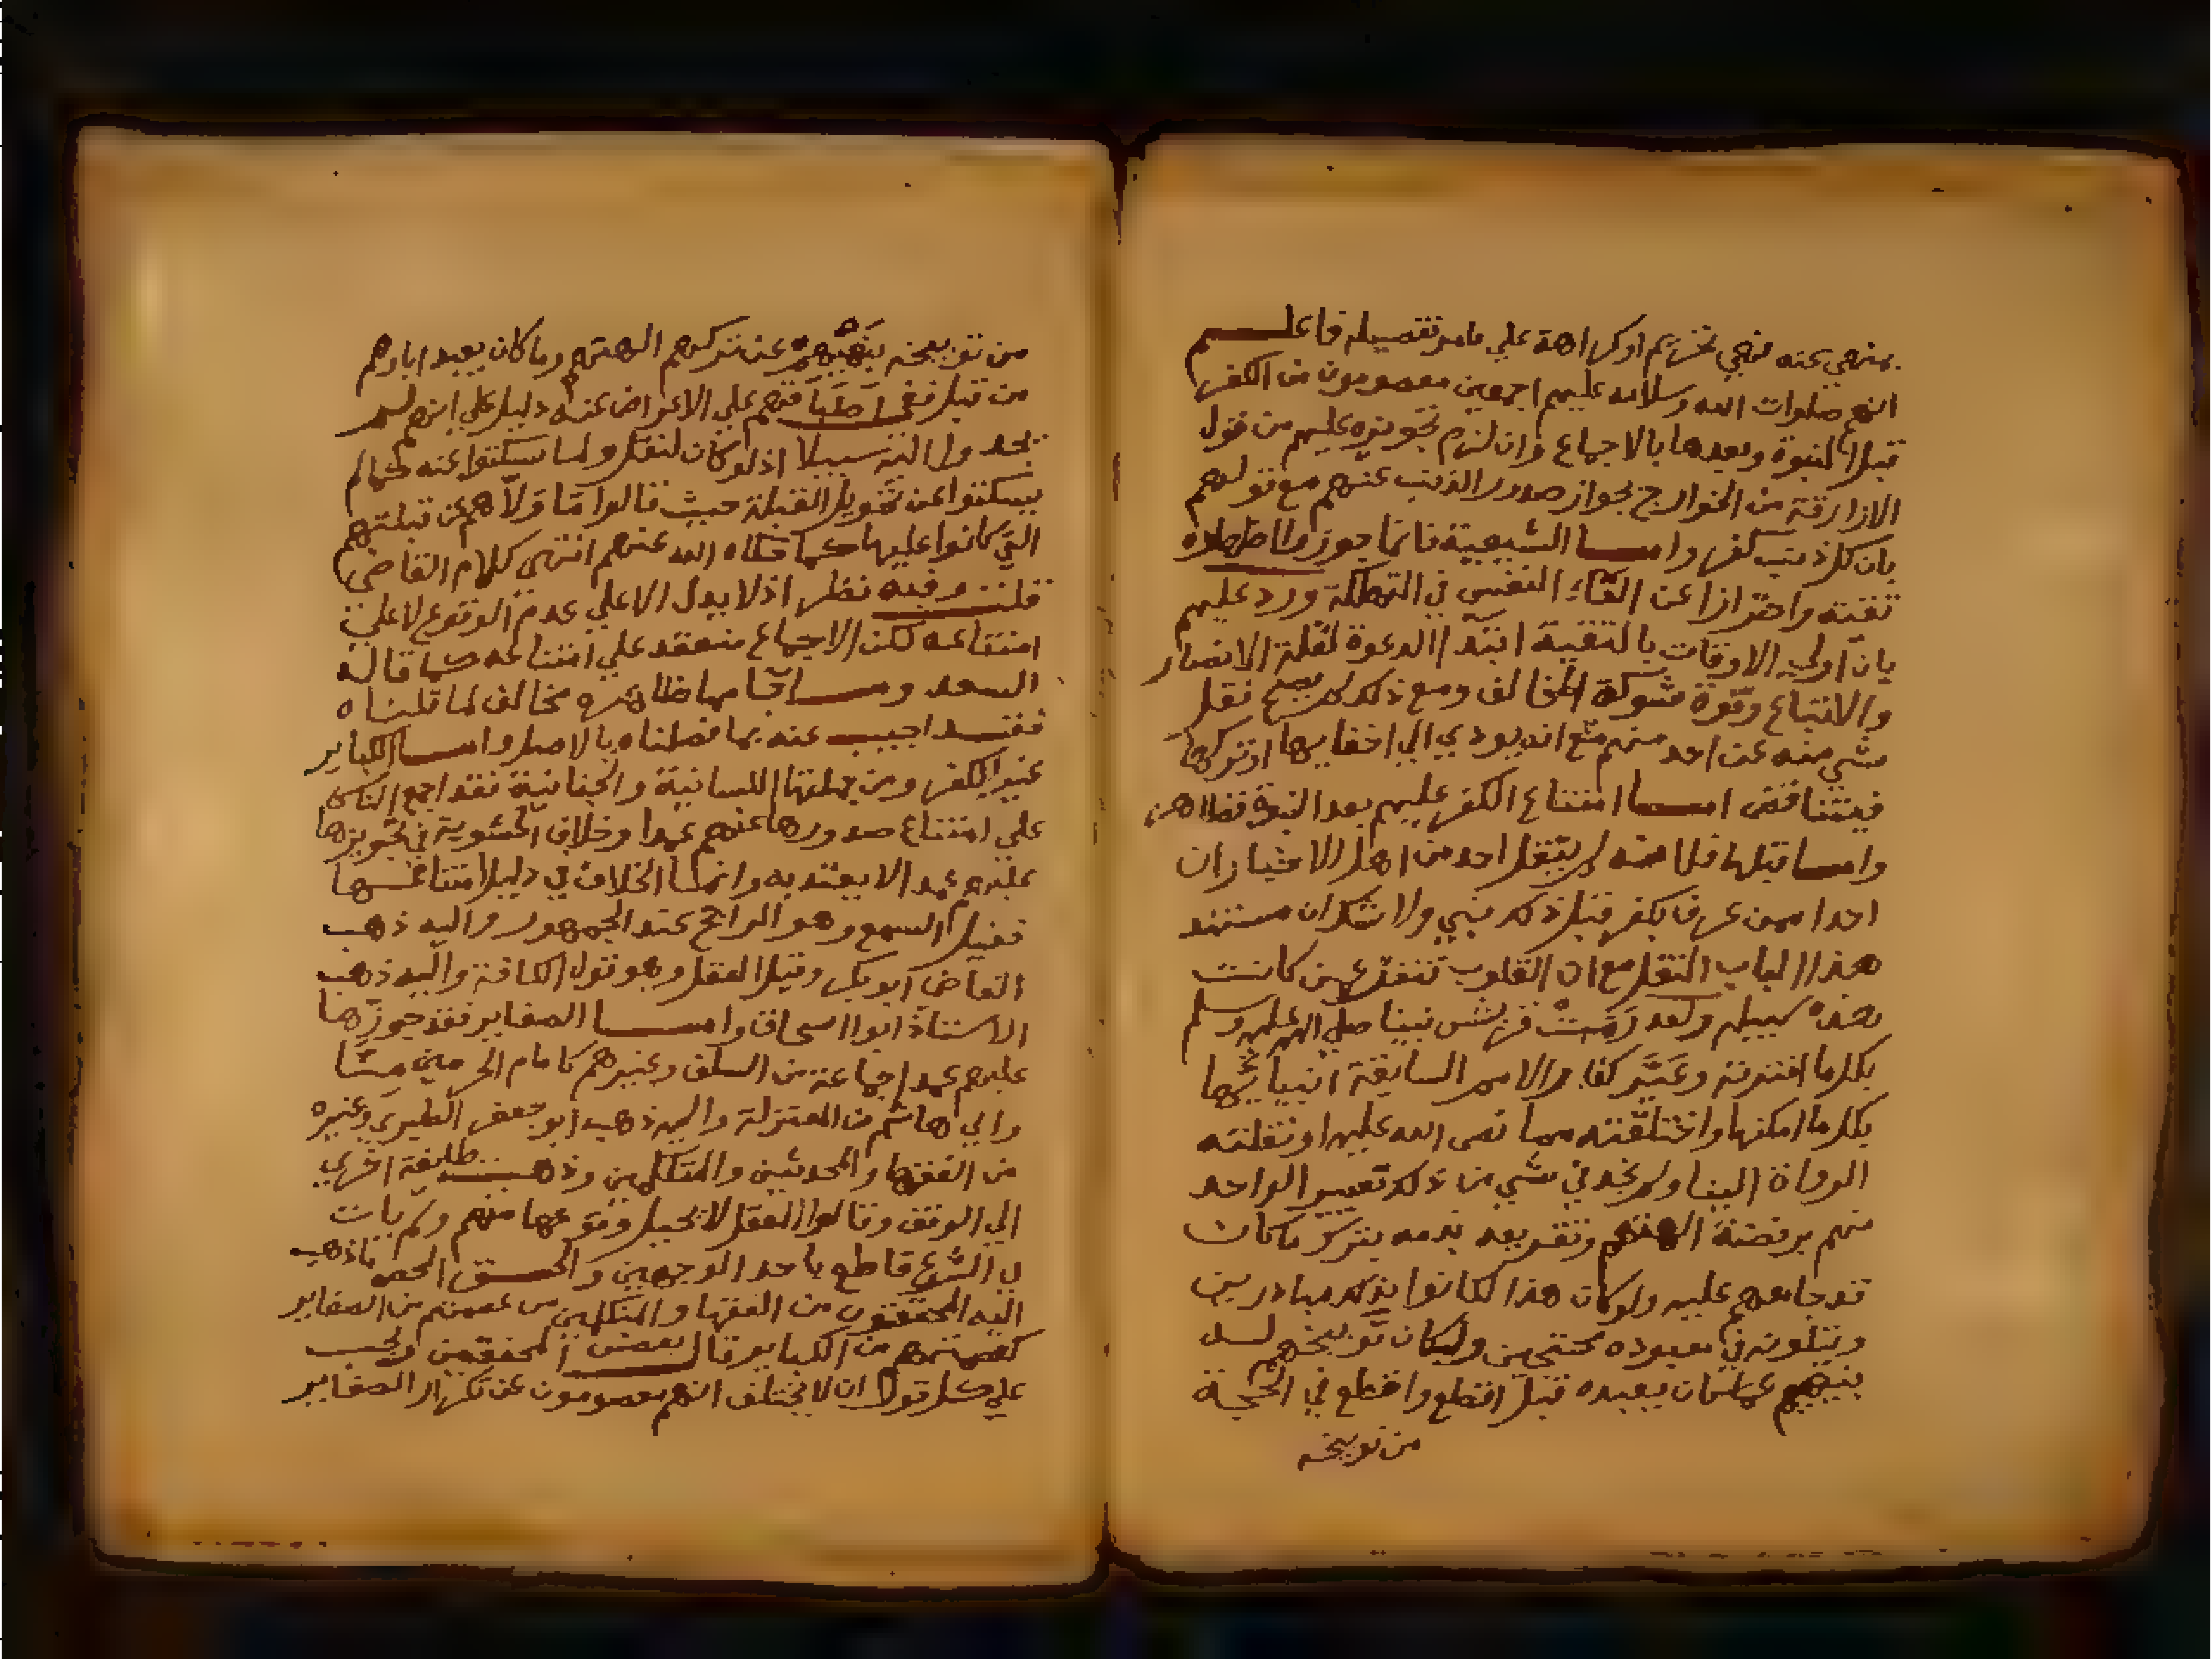 بمنهي عنه نهي تحريم او كراهة علي ما مر تفصيله فاعلم
انهم صلوات الله وسلامه عليهم اجمعين معصومون من الكفر
قبل النبوة وبعدها بالاجماع وان لزم تجويزه عليهم من قول
الازارقة من الخوارج بجواز صدور الذنب عنهم مع قولهم
بان كل ذنب كفر واما الشيعية فانما جوزوا اظهاره
تقية واحترازا عن القاء النفس في التهلكة ورد عليهم
بان اولي الاوقات بالتقية ابتداء الدعوة لقلة الانصار
والاتباع وقوة شوكة المخالف ومع ذلك لم يصح نقل
شي منه عن احد منهم مع انه يودي الي اخفايها او تركها
فيتناقض اما امتناع الكفر عليهم بعد النبوة فظاهر
واما قبلها فلانه لم ينقل احد من اهل الاخبار ان
احدا ممن عرف بكفر قبل ذلك نبي ولا شك ان مستند
هذا الباب النقل مع ان القلوب تنفر عمن كانت
هذه سبيله ولقد رمت قريش نبينا صلي الله عليه وسلم
بكل ما افترته وعير كفار الامم السابقة انبيائها
بكل ما امكنها واختلقته مما نص الله عليه او نقلته
الرواة الينا ولم نجد في شي من ذلك تعيير الواحد
منهم برفضه الهتهم وتقريعه بذمه بترك ما كان
قد جامعهم عليه ولو كان هذا لكانوا بذلك مبادرين
وبتلونه في معبوده محتجين ولكان توبيخهم له
بنهيهم عما كان يعبده قبل افظع واقطع في الحجة
من توبيخه
من توبيخه بنهيهم عن تركهم الهتهم وما كان يعبد اباوهم
من قبل ففي اطباقهم علي الاعراض عنه دليل علي انهم لم
يجدوا اليه سبيلا اذ لو كان لنقل ولما سكتوا عنه كما لم
يسكتوا عن تحويل القبلة حيث قالوا ما ولاهم عن قبلتهم
التي كانوا عليها كما حكاه الله عنهم انتهي كلام القاضي
قلت وفيه نظر اذ لا يدل الا علي عدم الوقوع لا علي
امتناعه لكن الاجماع منعقد علي امتناعه كما قاله
السعد وما جا مما ظاهره مخالف لما قلناه
فقد اجيب عنه بما فصلناه بالاصل واما الكباير
غير الكفر ومن جملتها اللسانية والجنانية فقد اجمع الناس
علي امتناع صدورها عنهم عمدا وخلاف الحشوية في تجويزها
عليهم عمدا لا يعتد به وانما الخلاف في دليل امتناعها
فقيل السمع وهو الراجح عند الجمهور واليه ذهب
القاضي ابو بكر وقيل العقل وهو قول الكافة واليه ذهب
الاستاذ ابوا اسحاق واما الصغاير فقد جوزها
عليهم عمدا جماعة من السلف وغيرهم كامام الحرمين منا
وابي هاشم من المعتزلة واليه ذهب ابو جعفر الطبري وغيره
من الفقها والمحدثين والمتكلمين وذهبت طايفة اخري
الي الوقف وقالوا العقل لا يحيل وقوعها منهم ولم يات
في الشرع قاطع باحد الوجهين والحق ما ذهب
اليه المحققون من الفقها والمتكلمين من عصمتهم من الصغاير
كعصمتهم من الكباير قال بعض المحققين ويجب
علي كل قول ان لا يختلف انهم معصومون عن تكرار الصغاير